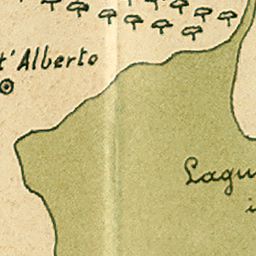 t'Alberto
Lagu
i